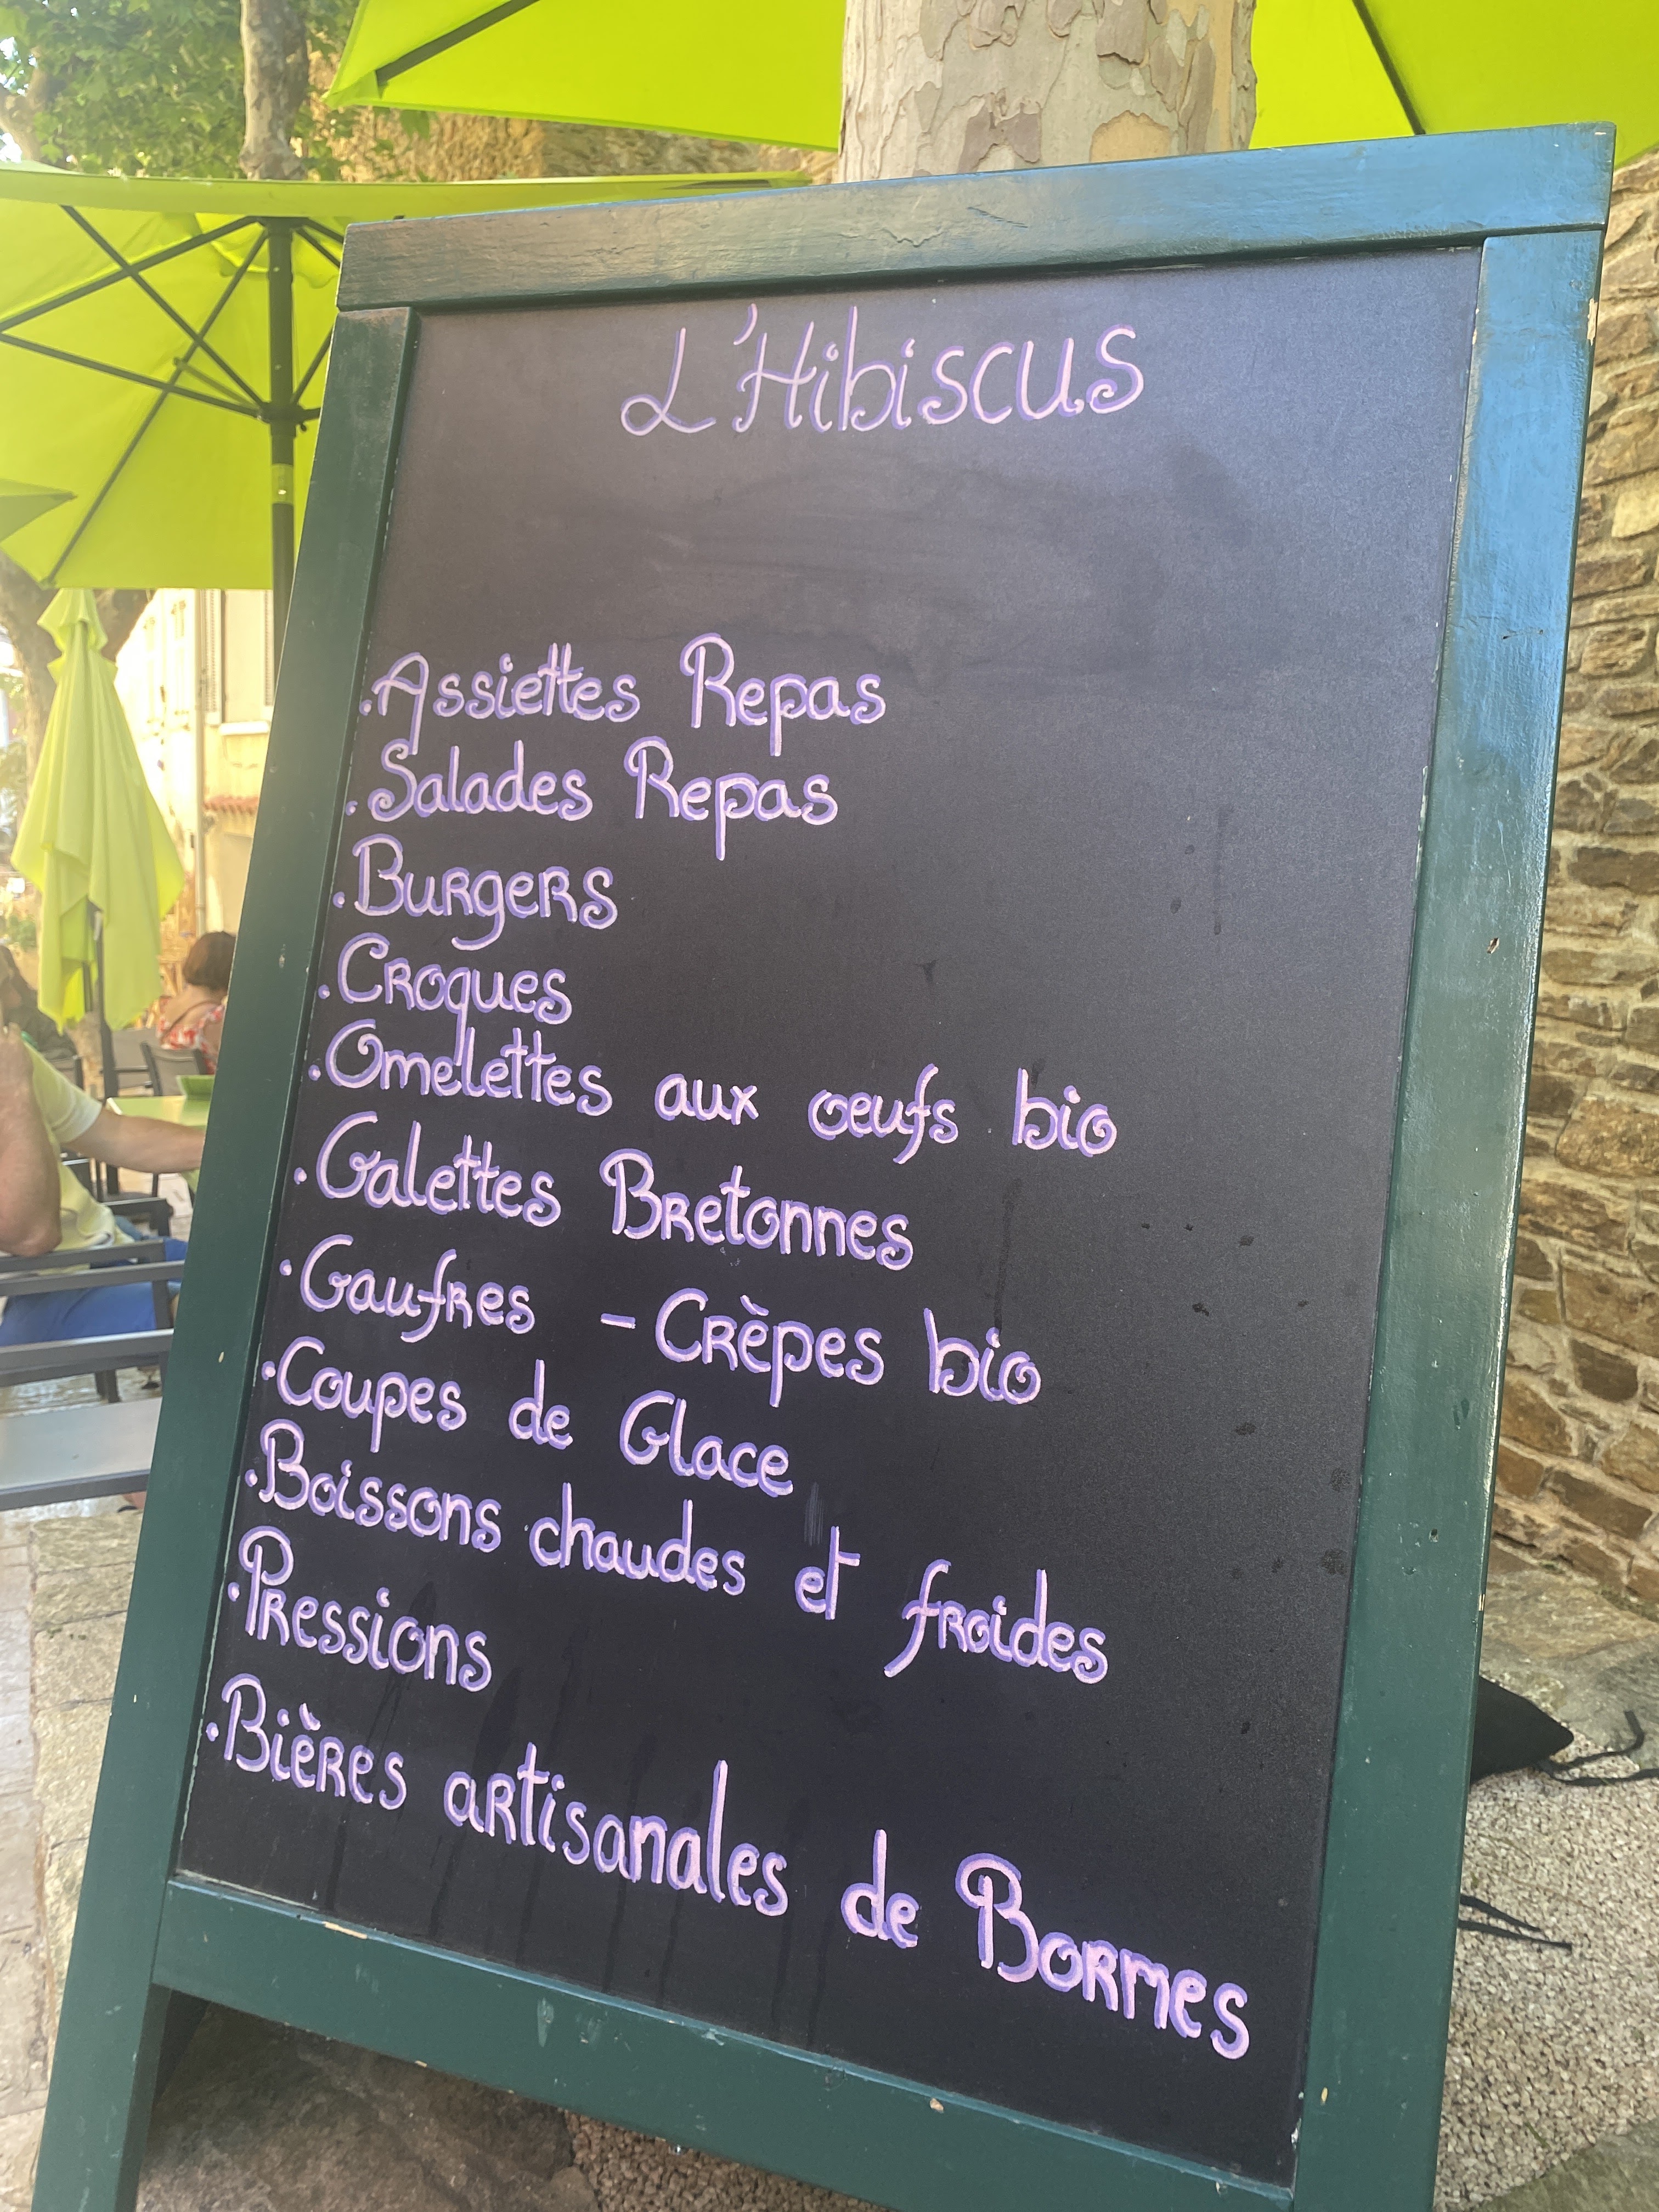 L'Hibiscus
. Assiettes Repas
. Salades Repas
. Burgers
. Croques
. Omelettes aux œufs bio
. Galettes Bretonnes
. Gaufres - Crèpes bio
. Coupes de Glace
. Boissons chaudes et froides
. Pressions
. Bières artisanales de Bormes